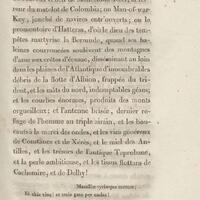 reur du mardot de Colombia; ou Man-of-war-
Key, jonché de navires entr'ouverts; ou le
promontoire d'Hatteras, d'où le dieu des tem-
pêtes martyrise la Bermude, quand ses ba-
leines courroucées soulèvent des montagnes
d'eau aux crêtes d'écume, disséminant au loin
dans les plaines de l'Atlantique d'innombrables
débris de la flotte d'Albion, frappée du tri-
dent, et les mâts du nord, indomptables géans;
et les courbes énormes, produits des monts
orgueilleux; et l'antenne brisée, dernier re-
fuge de l'homme au triple airain, et les bas-
tants à la merci des ondes, et les vins généreux
de Constance et de Xérès, et le miel des An-
tilles, et les trésors de l'antique Taprobane,
et la perle ambitieuse, et les tissus flottans de
Cachemire, et de Delhy!